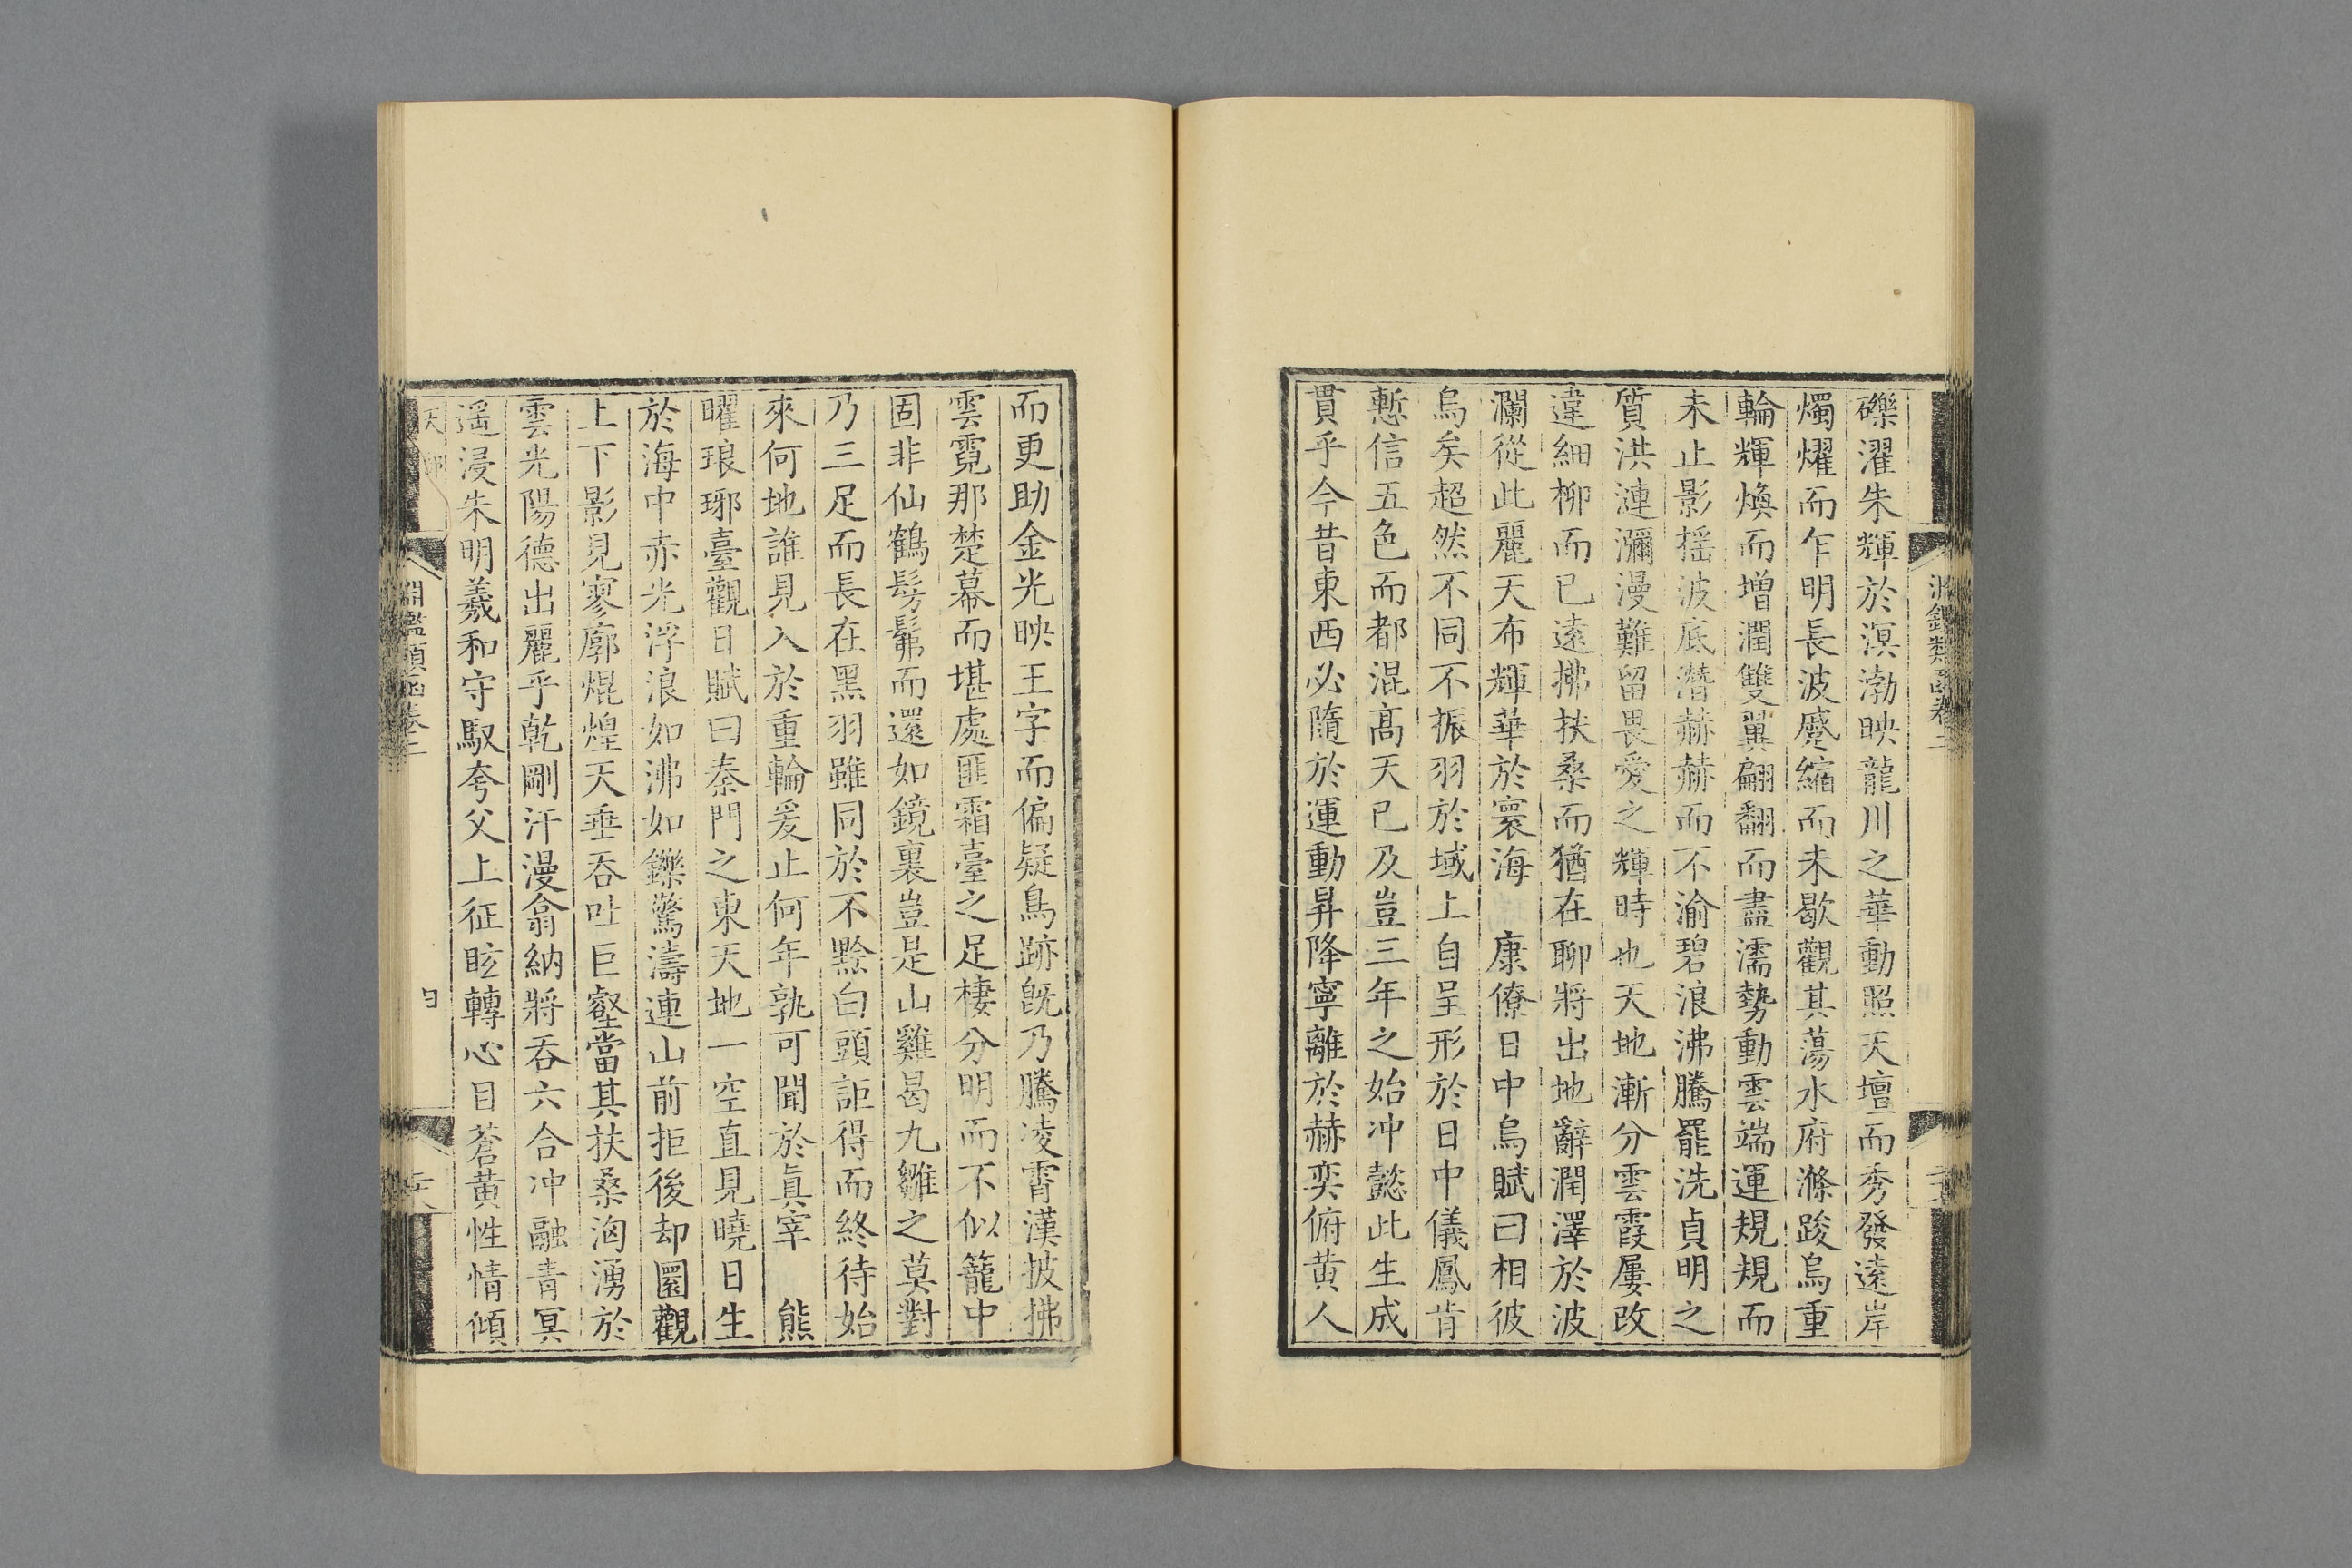 礫濯朱輝於溟渤映龍川之華動照天壇而秀發遠岸
燭燿而乍明長波蹙縮而未歇觀其蕩水府滌踆烏重
輪輝煥而增潤雙翼翩翻而盡濡勢動雲端運規規而
未止影搖波底潛赫赫而不渝碧浪沸騰罷洗貞明之
質洪漣瀰漫難留畏愛之輝時也天地漸分雲霞屢改
違細柳而已遠拂扶桑而猶在聊將出地辭潤澤於波
瀾從此麗天布輝華於寰海　康僚日中烏賦曰相彼
烏矣超然不同不振羽於域上自呈形於日中儀鳳肯
慙信五色而都混高天已及豈三年之始冲懿此生成
貫乎今昔東西必隨於運動昇降寧離於赫奕俯黃人
而更助金光映王字而偏疑鳥跡旣乃騰凌霄漢披拂
雲霓那楚幕而堪處匪霜臺之足棲分明而不似籠中
固非仙鶴髣髴而還如鏡裏豈是山雞曷九雛之莫對
乃三足而長在黑羽雖同於不黔白頭詎得而終待始
來何地誰見入於重輪爰止何年孰可聞於眞宰　熊
曜琅琊臺觀日賦曰秦門之東天地一空直見曉日生
於海中赤光浮浪如沸如鑠驚濤連山前拒後却圜觀
上下影見寥廓焜煌天垂吞吐巨壑當其扶桑洶湧於
雲光陽德出麗乎乾剛汗漫翕納將吞六合冲融青冥
遥浸朱明羲和守馭夸父上征眩轉心目蒼黃性情傾
淵鑑類函卷二
日